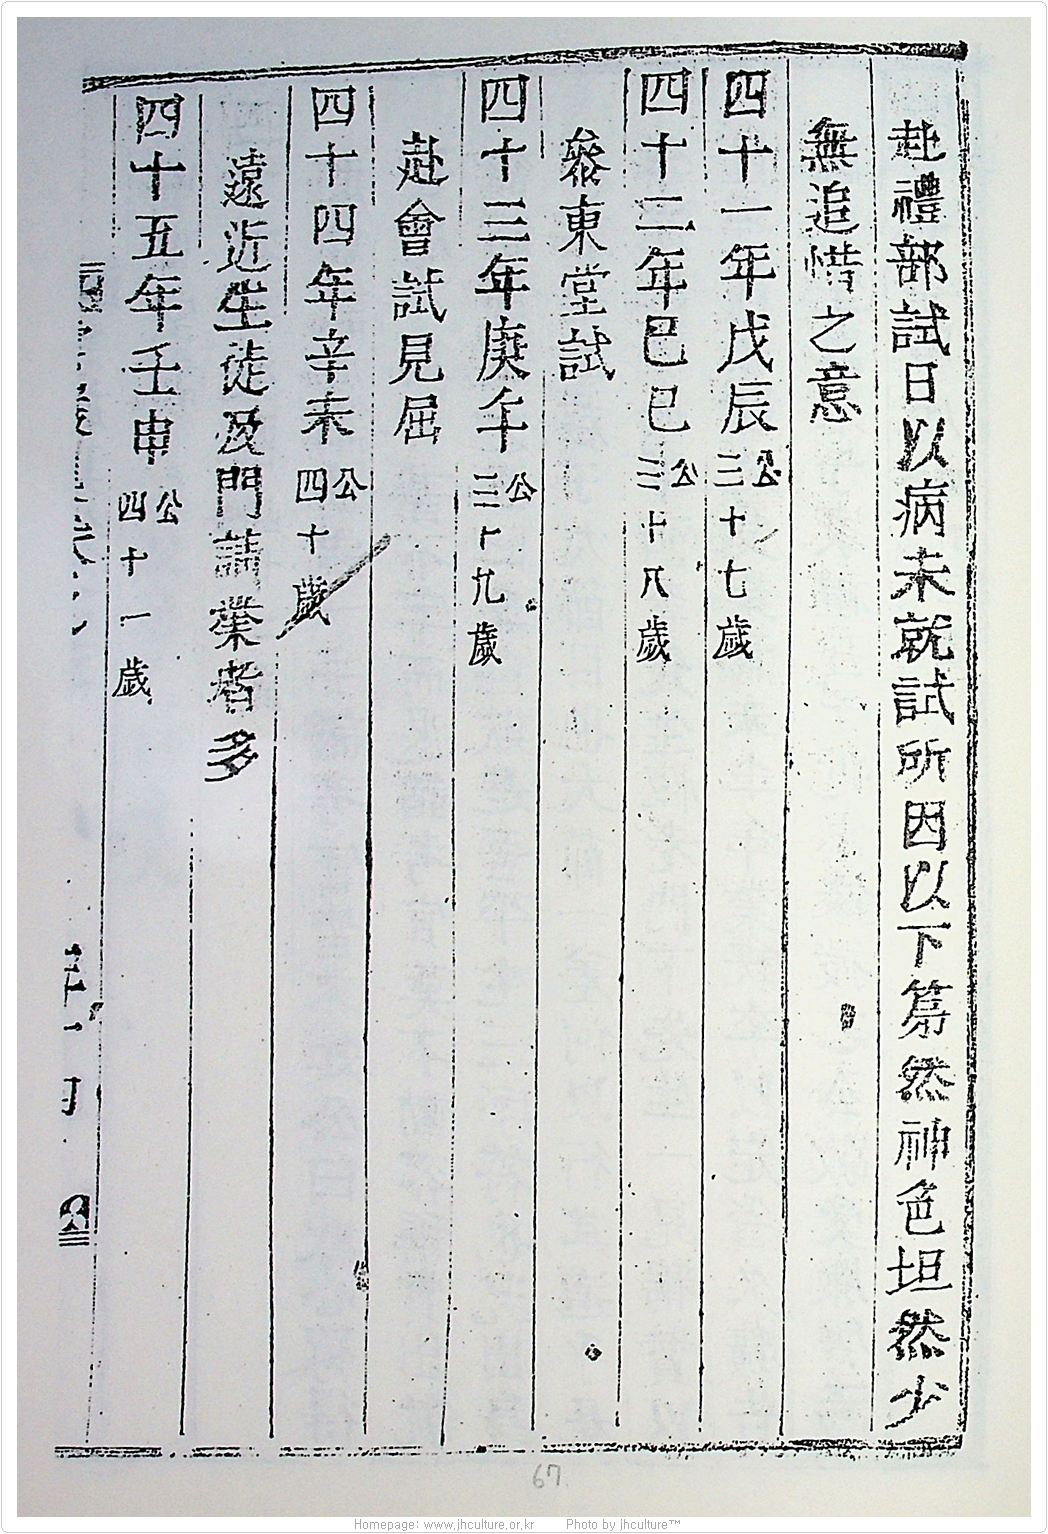 赴禮部試日以病未就試所因以下第然神色坦然少
無追惜之意
四十一年戊辰 公三十七歲
四十二年己巳 公三十八歲
參東堂試
四十三年庚午 公三十九歲
赴會試見屈
四十四年辛未 公四十歲
遠近生徒及門請業者多
四十五年壬申 公四十一歲
67
Homepage: www.jhculture.or.kr Photo by jhculture™